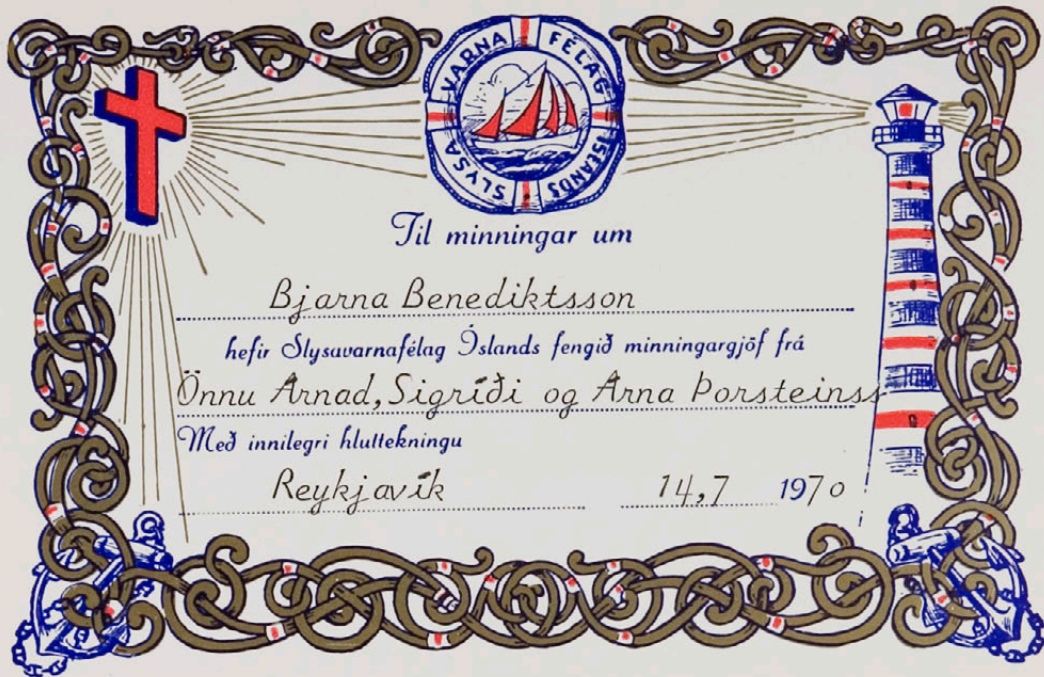 SLYSA VARNA FÉLAG ÍSLANDS
Til minningar um
Bjarna Benediktsson
hefir Slysavarnafélag Íslands fengið minningargjöf frá
Önnu Árnad, Sigríði og Árna Þorsteinss
Með innilegri hluttekningu
Reykjavík 14,7 1970